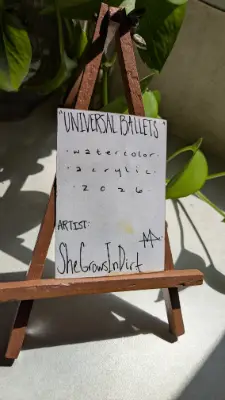 "UNIVERSAL BALLETS"
·watercolor·
·acrylic·
·2026·
ARTIST:
SheGrowsInDirt